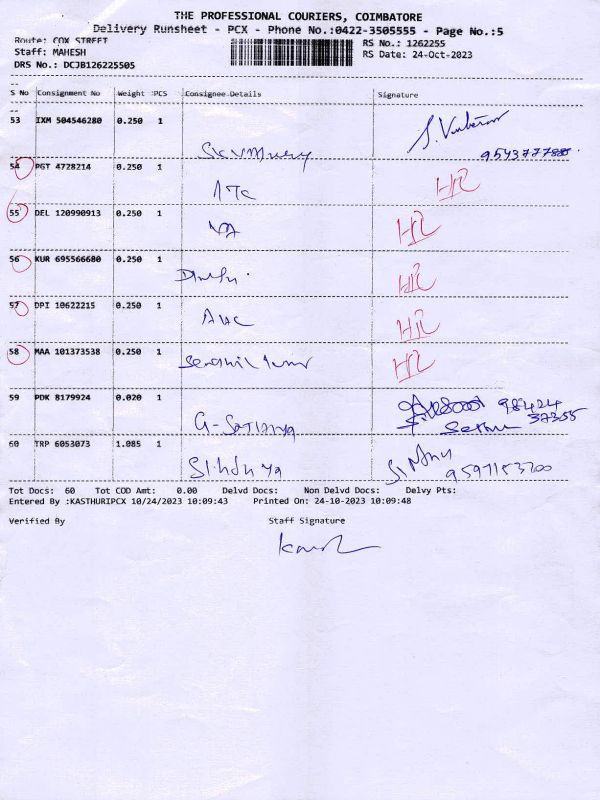 THE PROFESSIONAL COURIERS, COIMBATORE
Delivery Runsheet - PCX - Phone No.:0422-3505555 - Page No.:5
Route: COX STREET
RS No.: 1262255
Staff: MAHESH
RS Date: 24-Oct-2023
DRS No.: DCJB126225505
S No Consignment No Weight PCS Consignee Details Signature
53 IXM 504546280 0.250 1
54 PGT 4728214 0.250 1
ITC
55 DEL 120990913 0.250 1
56 KUR 695566680 0.250 1
57 DPI 10622215 0.250 1
58 MAA 101373538 0.250 1
Senthil kumar
59 PDK 8179924 0.020 1 98424
37355
G-Sathya
60 TRP 6053073 1.085 1
Tot Docs: 60 Tot COD Amt: 0.00 Delvd Docs: Non Delvd Docs: Delvy Pts:
Entered By :KASTHURIPCX 10/24/2023 10:09:43 Printed On: 24-10-2023 10:09:48
Verified By Staff Signature